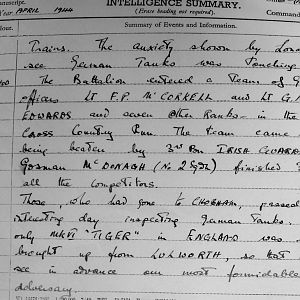 INTELLIGENCE SUMMARY.
Year APRIL 1944
(Erase heading not required).
Command
Summary of Events and Information.
Trains. The anxiety shown by Lon
see German Tanks was touching
The Battalion entered a Team of
officers Lt F.P. McCORKELL and Lt G.
EDWARDS and seven other Ranks - in the
Cross Country Run. The team came
being beaten by 3rd Bn IRISH GUARDS
Gdsman McDONAGH (No 2 Sqdn) finished
all the competitors.
Those, who had gone to CHOBHAM, passed
interesting day inspecting German Tanks.
only MKVI "TIGER" in ENGLAND was
brought up from LULWORTH, so that
see in advance our most formidable
adversary.